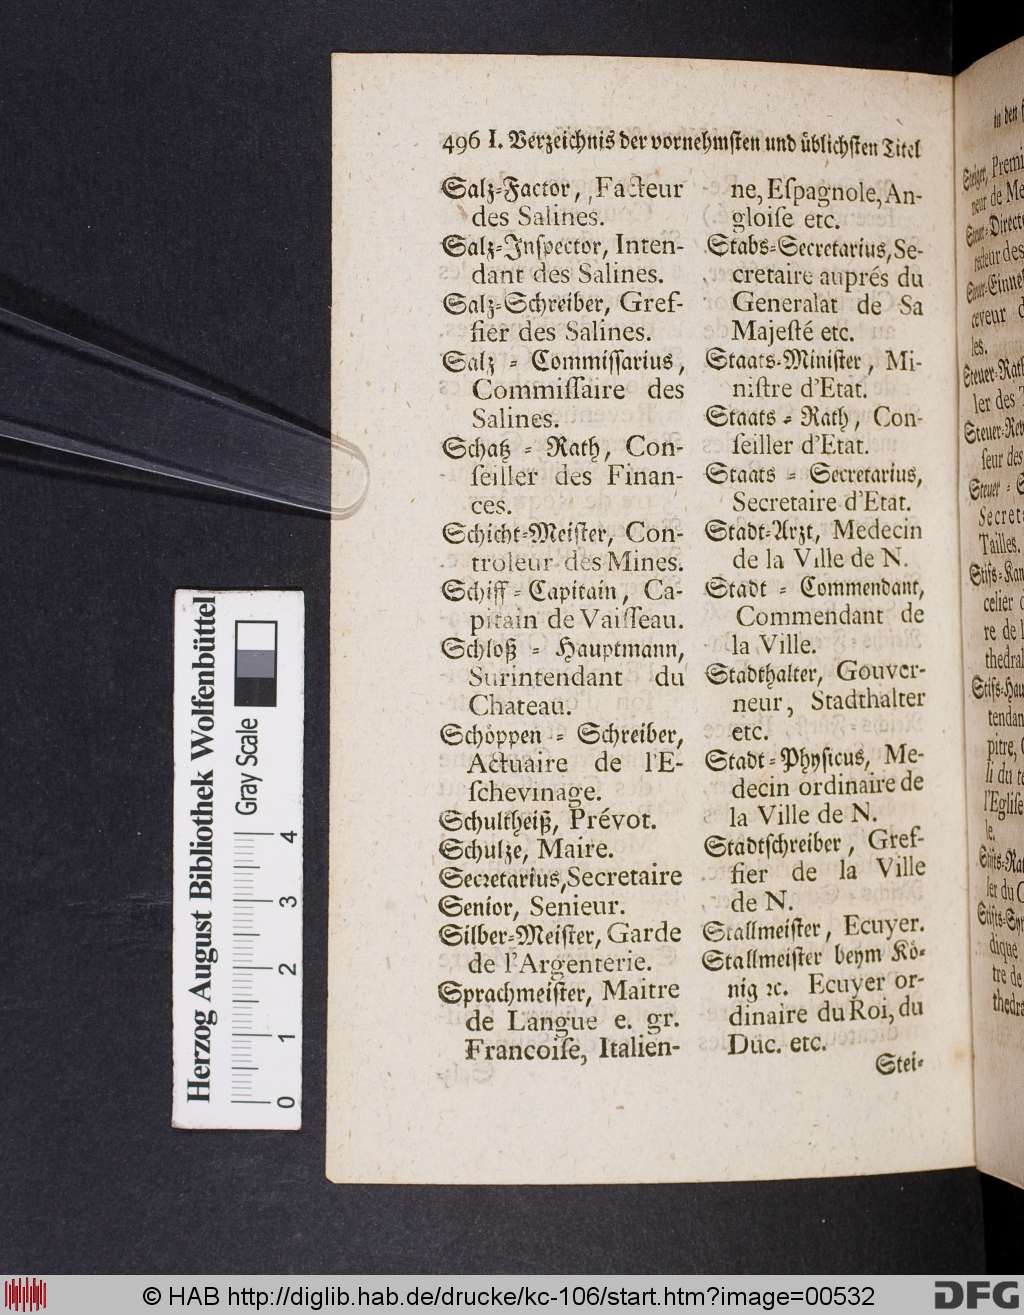 496 I. Verzeichnis der vornehmsten und üblichsten Titel
Salz-Factor, Facteur
des Salines.
Salz-Inspector, Inten-
dant des Salines.
Salz-Schreiber, Gref-
fier des Salines.
Salz - Commissarius,
Commissaire des
Salines.
Schatz - Rath, Con-
seiller des Finan-
ces.
Schicht-Meister, Con-
troleur des Mines.
Schiff - Capitain, Ca-
pitain de Vaisseau.
Schloß - Hauptmann,
Surintendant du
Chateau.
Schöppen - Schreiber,
Actuaire de l'E-
schevinage.
Schultheiß, Prévot.
Schulze, Maire.
Secretarius, Secretaire
Senior, Senieur.
Silber-Meister, Garde
de l'Argenterie.
Sprachmeister, Maitre
de Langue e. gr.
Francoise, Italien-
ne, Espagnole, An-
gloise etc.
Stabs-Secretarius, Se-
cretaire auprés du
Generalat de Sa
Majesté etc.
Staats-Minister, Mi-
nistre d'Etat.
Staats - Rath, Con-
seiller d'Etat.
Staats - Secretarius,
Secretaire d'Etat.
Stadt-Arzt, Medecin
de la Ville de N.
Stadt - Commendant,
Commendant de
la Ville.
Stadthalter, Gouver-
neur, Stadthalter
etc.
Stadt-Physicus, Me-
decin ordinaire de
la Ville de N.
Stadtschreiber, Gref-
fier de la Ville
de N.
Stallmeister, Ecuyer.
Stallmeister beym Kö-
nig ꝛc. Ecuyer or-
dinaire du Roi, du
Duc. etc.
Stei-
in den
Steiger, Premi
neur de Me
Steuer-Direct
des
ceveur
les.
Steuer-Rath
ler des
seur des
Steuer - S
Secret
Tailles.
Stifs-Kan
celier
re de l
thedral
Stifs-Hau
tendan
pitre,
li du te
l'Eglise
le.
Stifts-Ra
ler du C
Stifts-Sy
dique
tre de
thedra
Herzog August Bibliothek Wolfenbüttel
Gray Scale
0 1 2 3 4
© HAB http://diglib.hab.de/drucke/kc-106/start.htm?image=00532
DFG